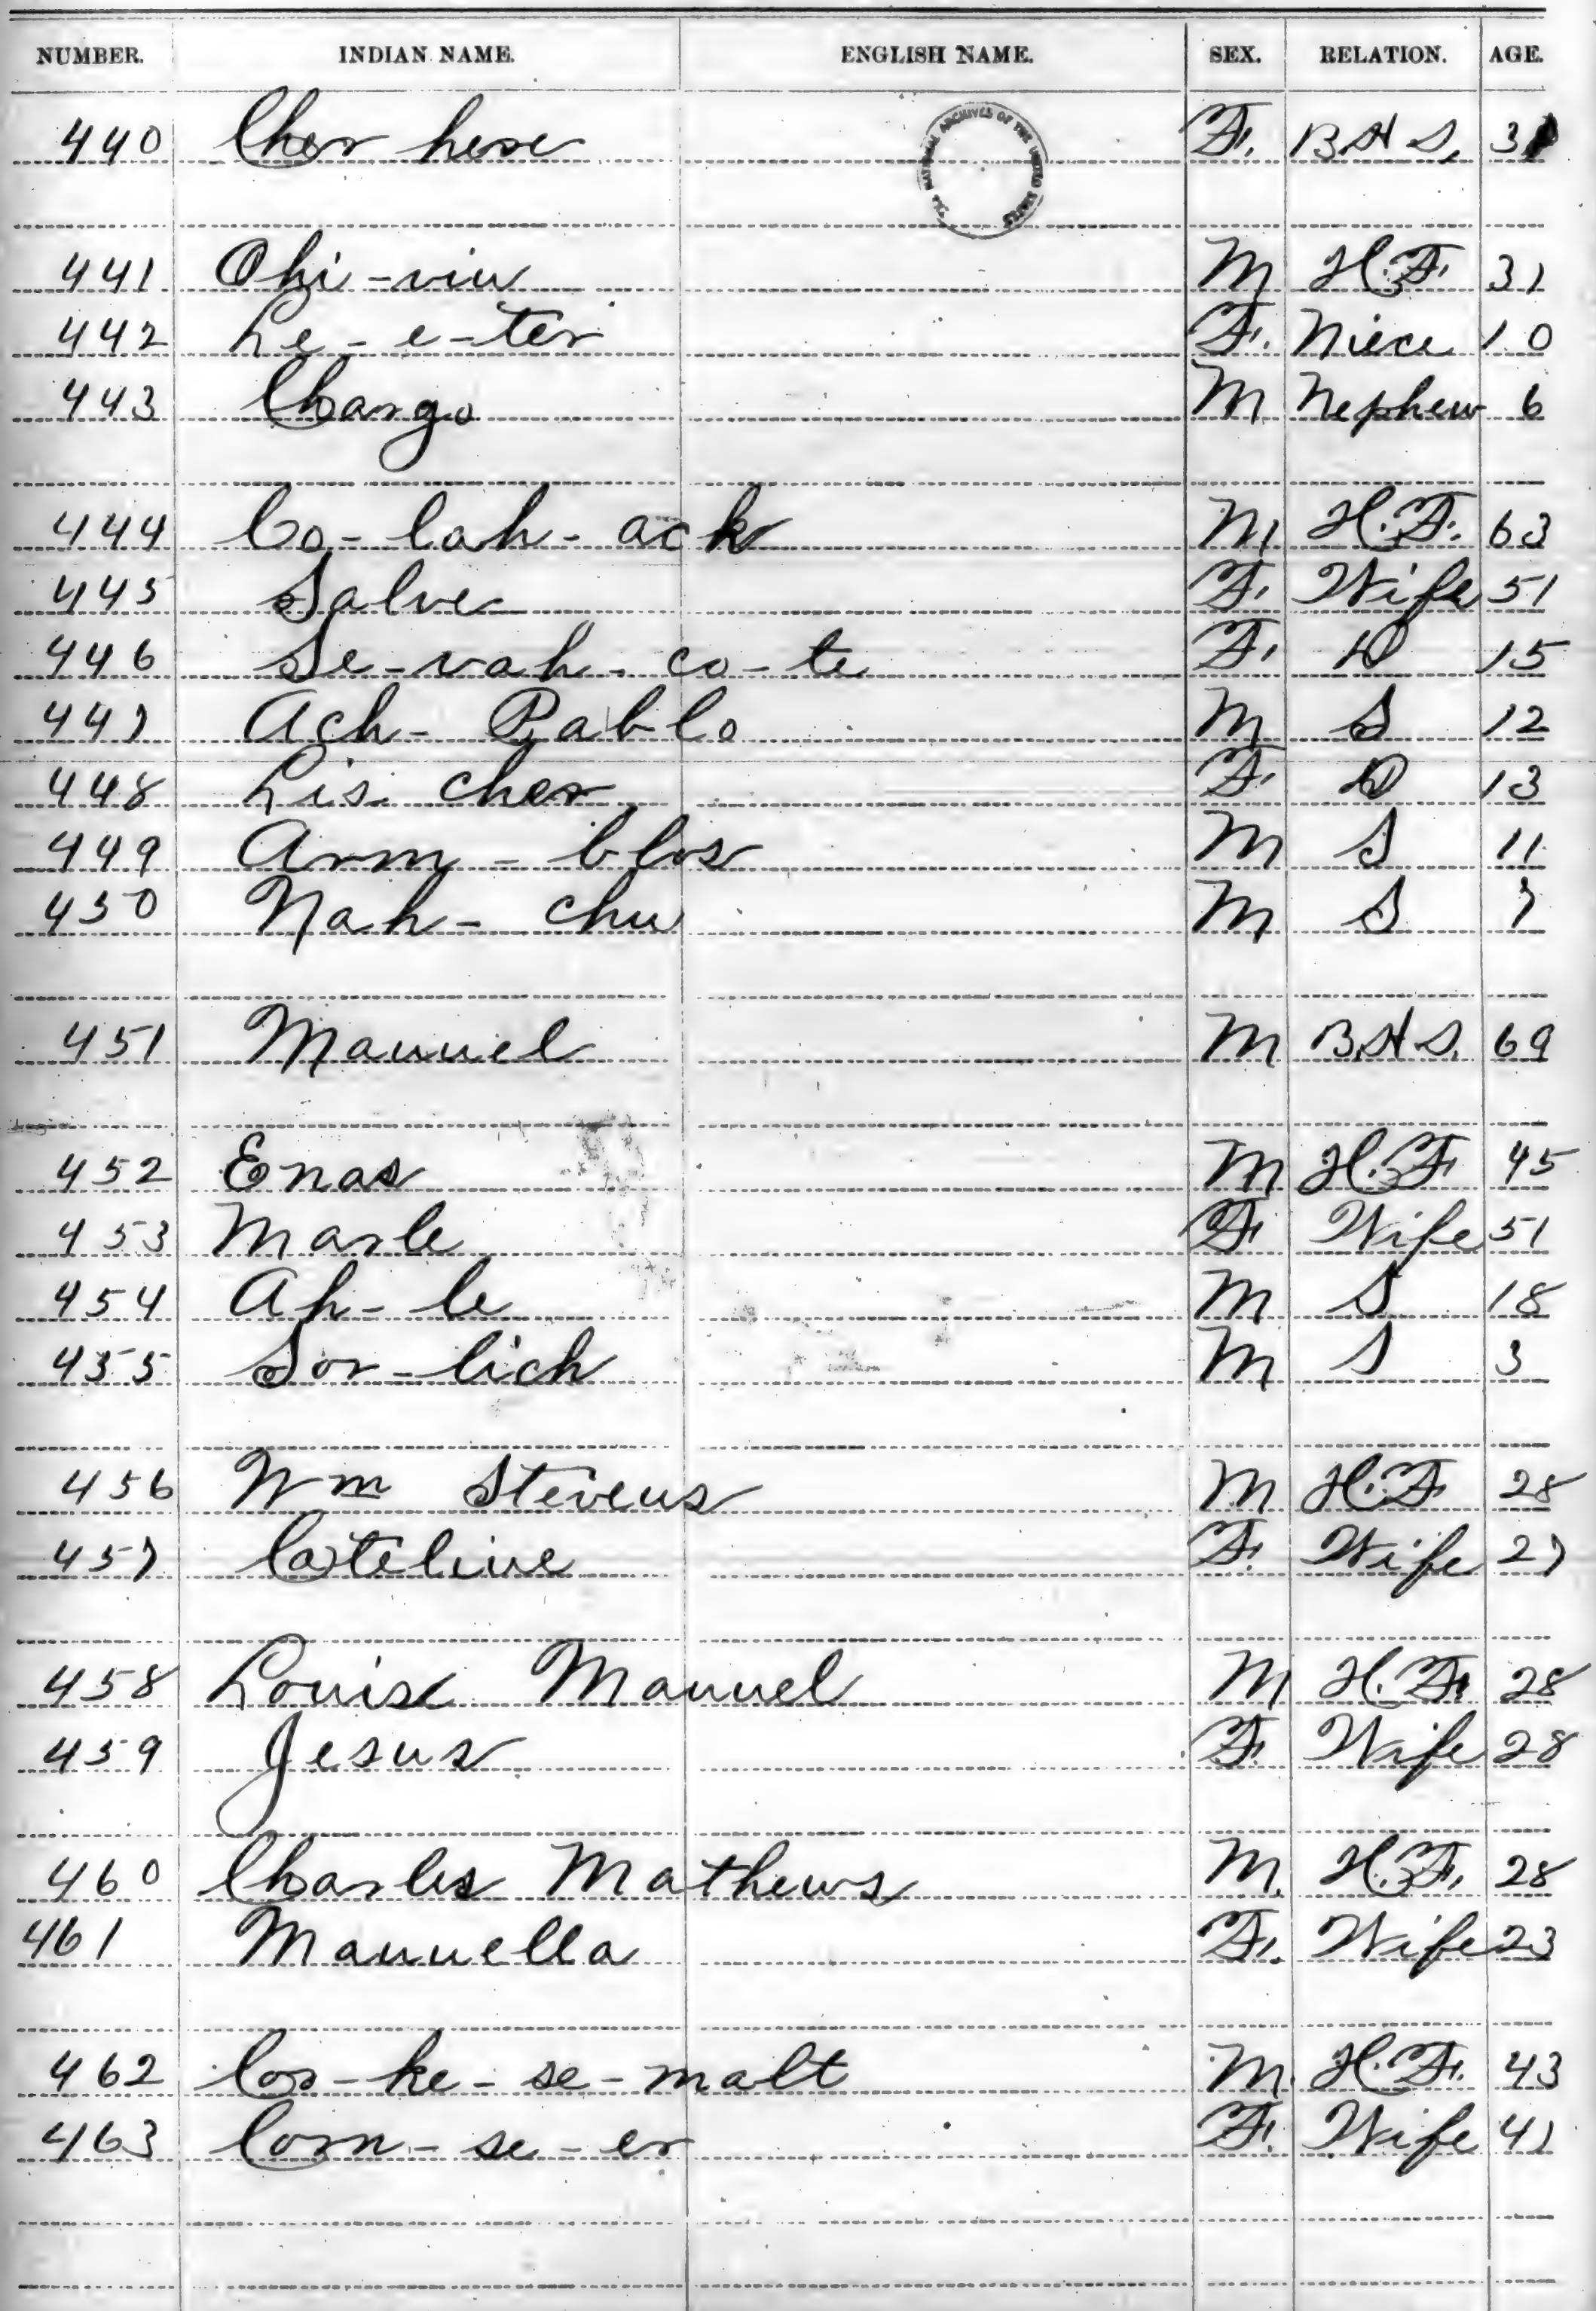 NUMBER. INDIAN NAME. ENGLISH NAME. SEX. RELATION. AGE.
THE NATIONAL ARCHIVES OF THE UNITED STATES
440 Cher hese F. B.H.S. 31
441 Chi-viu M H.F. 31
442 Le-e-ter F. Niece 10
443 Chargo M Nephew 6
444 Co-lah-ack M H.F. 63
445 Salve F. Wife 51
446 Se-vah-co-te F. D 15
447 Ach-Pablo M S 12
448 Lis cher F. D 13
449 Arm-blos M S 11
450 Nah-chu M S 7
451 Manuel M B.H.S. 69
452 Enas M H.F. 45
453 Marle F Wife 51
454 Ah-le M S 18
455 Sor-lich M S 3
456 Wm Stevens M H.F. 28
457 Cateline F. Wife 27
458 Louise Manuel M H.F. 28
459 Jesus F. Wife 28
460 Charles Mathews M. H.F. 28
461 Manuella F. Wife 23
462 Cor-ke-se-malt M. H.F. 43
463 Corn-se-er F. Wife 41